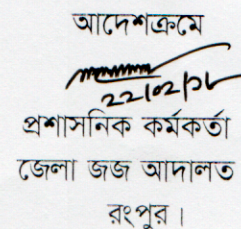 আদেশক্রমে
22/02/১৮
প্রশাসনিক কর্মকর্তা
জেলা জজ আদালত
রংপুর।